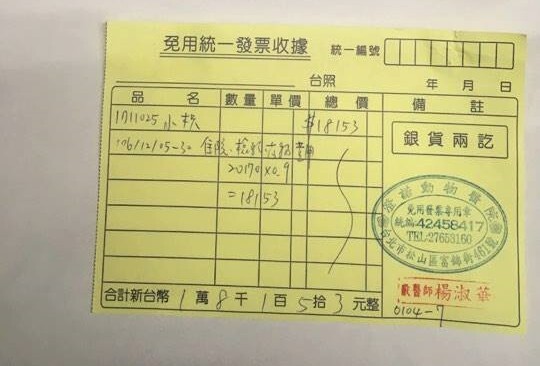 免用統一發票收據 統一編號
台照 年 月 日
品名 數量 單價 總價 備註
1711025 小秋 $18153
106/12/05-30 住院、檢驗、 費用
20170x0.9
=18153
銀貨兩訖
動物醫院
免用發票專用章
統編:42458417
TEL:27653160
台北市松山區富錦街461號
獸醫師 楊淑華
合計新台幣 1 萬 8 千 1 百 5 拾 3 元整
0104-7